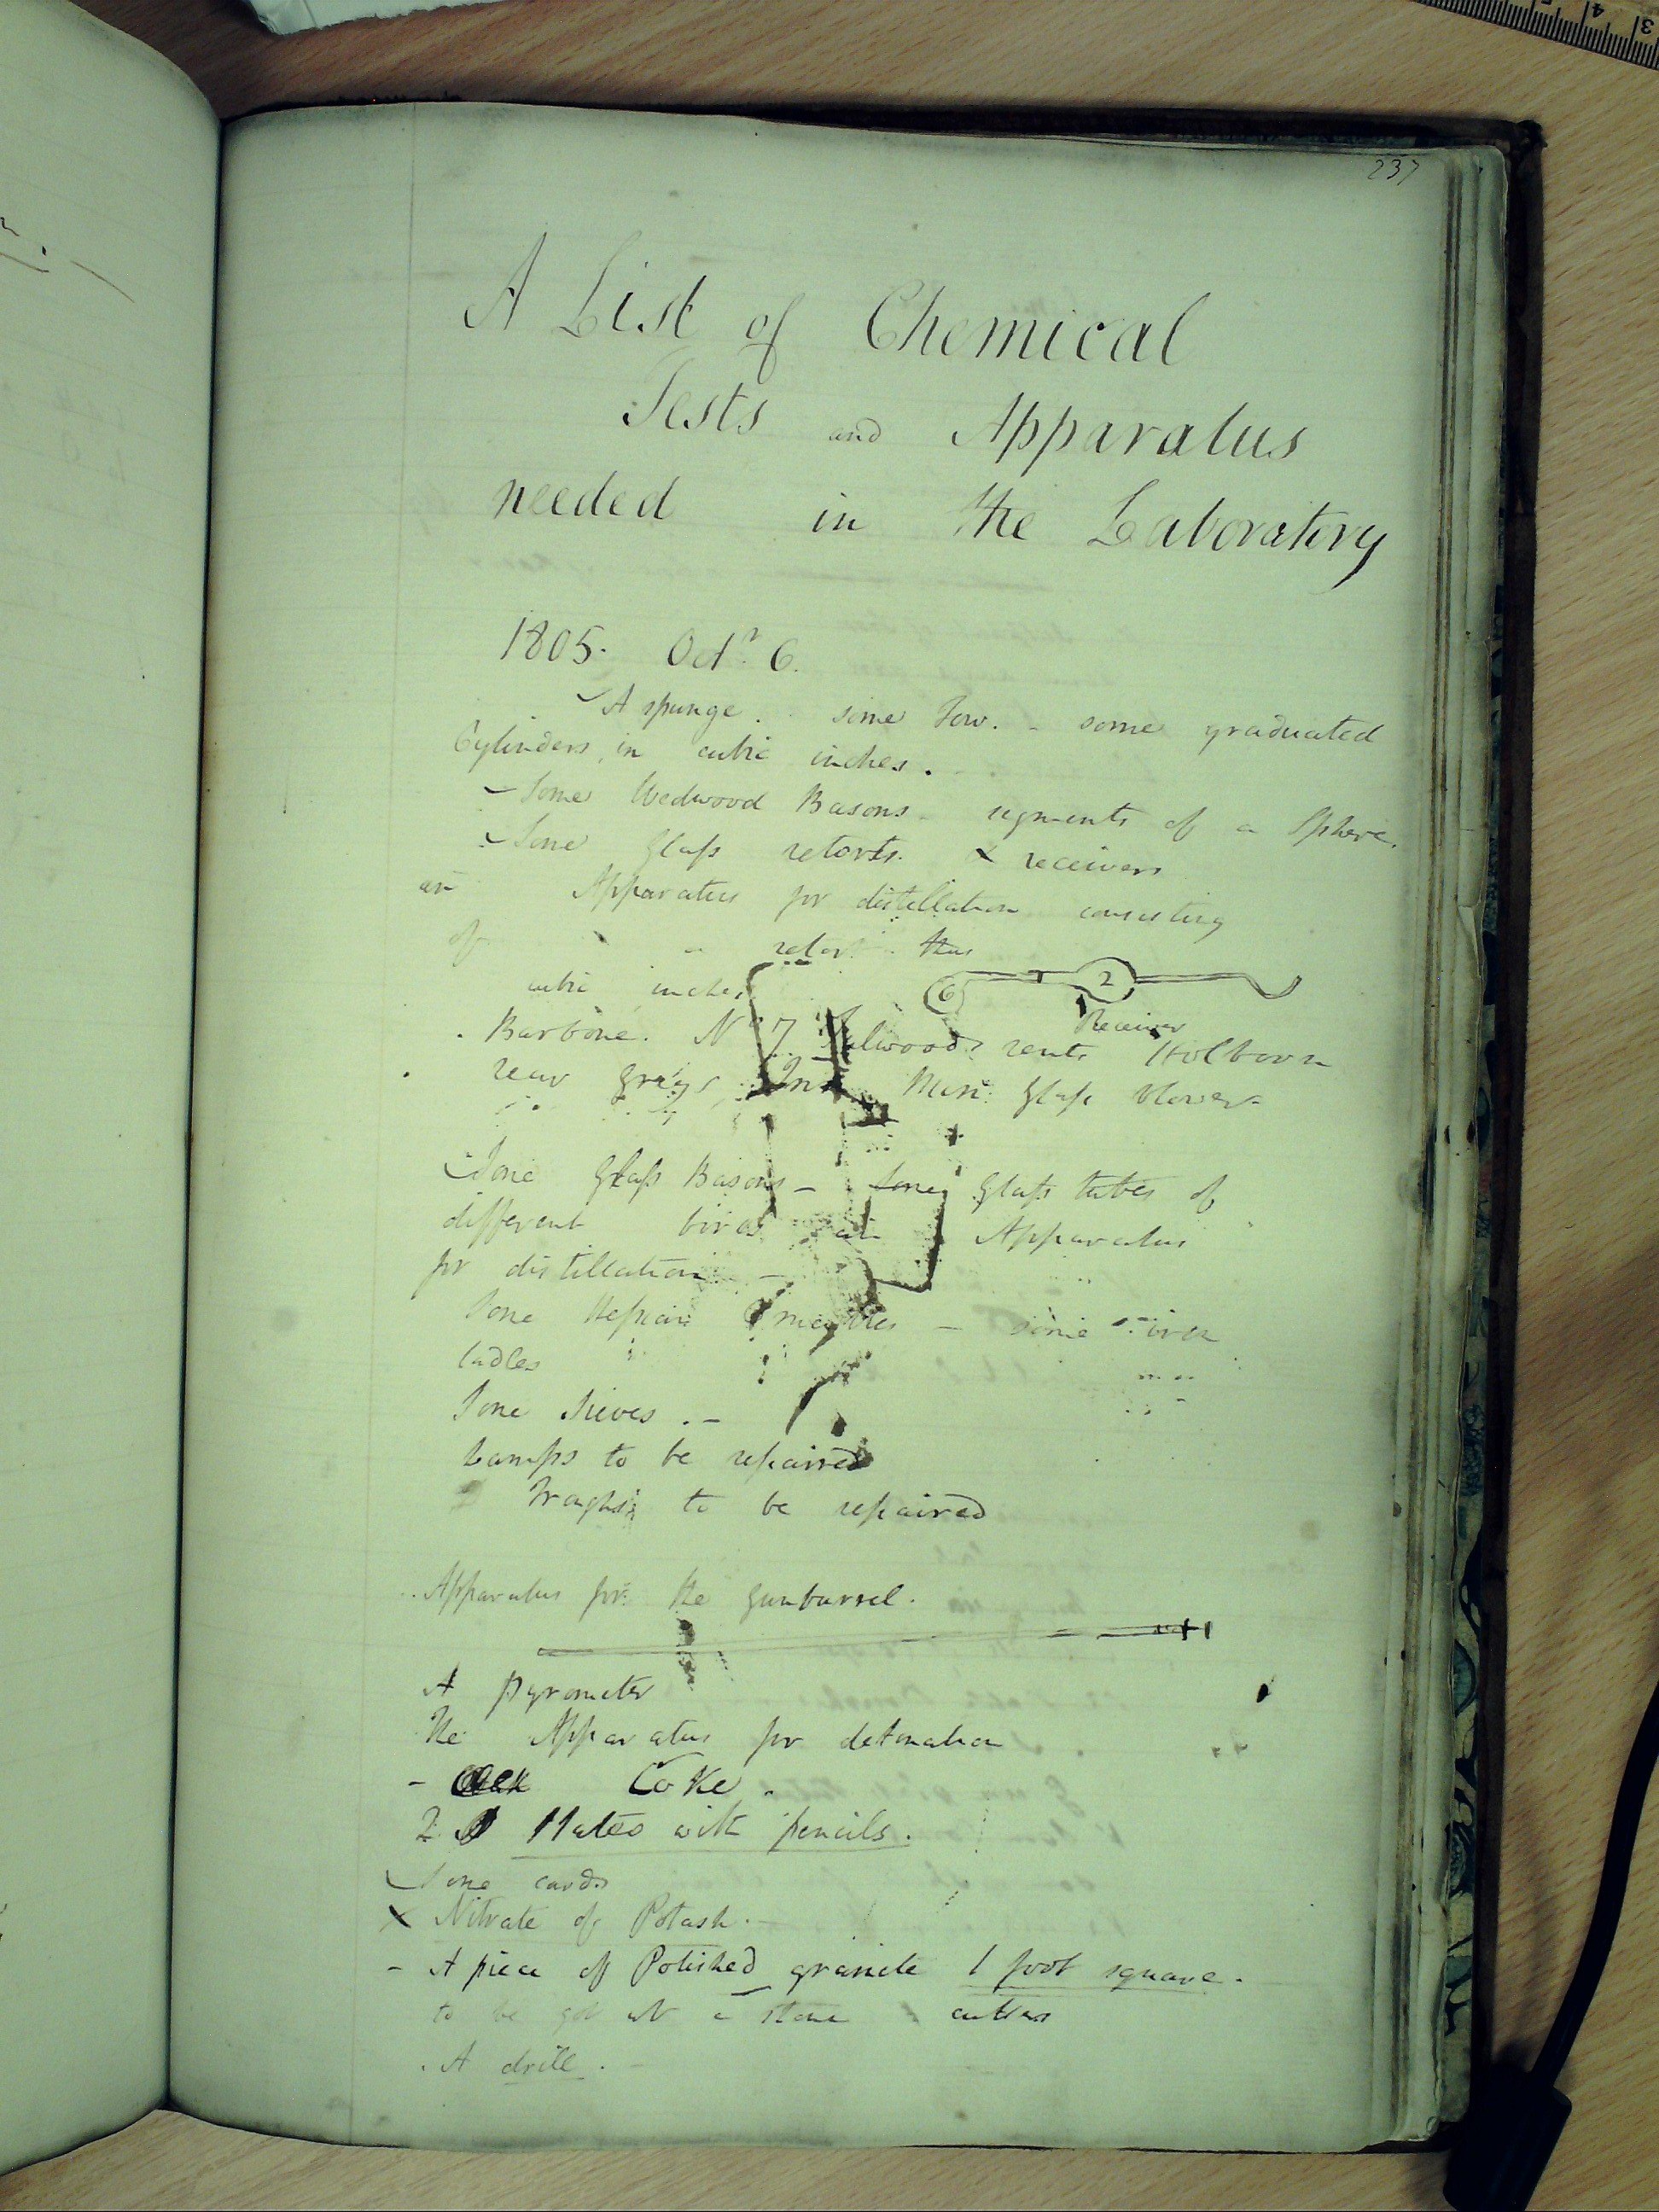 237
A List of Chemical
Tests and Apparatus
needed in the Laboratory
1805. Octr. 6.
A spunge. some Tow. - some graduated
Cylinders, in cubic inches.
- Some Wedwood Basons - segments of a Sphere.
Some Glass retorts. & receivers
an Apparatus for distillation consisting
of retort thus
cubic inches 6 2
Receiver
Barbone. No 7 Fulwoods rents Holborn
near Grays Inn Glass blower
Some Glass Basons - some Glass tubes of
different bores an Apparatus
for distillation -
Some Hessian Crucibles - some iron
ladles
Some Sieves. -
Lamps to be repaired
Troughs to be repaired
Apparatus for the gunbarrel.
A pyrometer
The Apparatus for detonation
- Coke.
2 Slates with pencils.
Some cards
X Nitrate of Potash. -
- A piece of Polished granite 1 foot square.
to be got at a stone cutters
. A drill. -